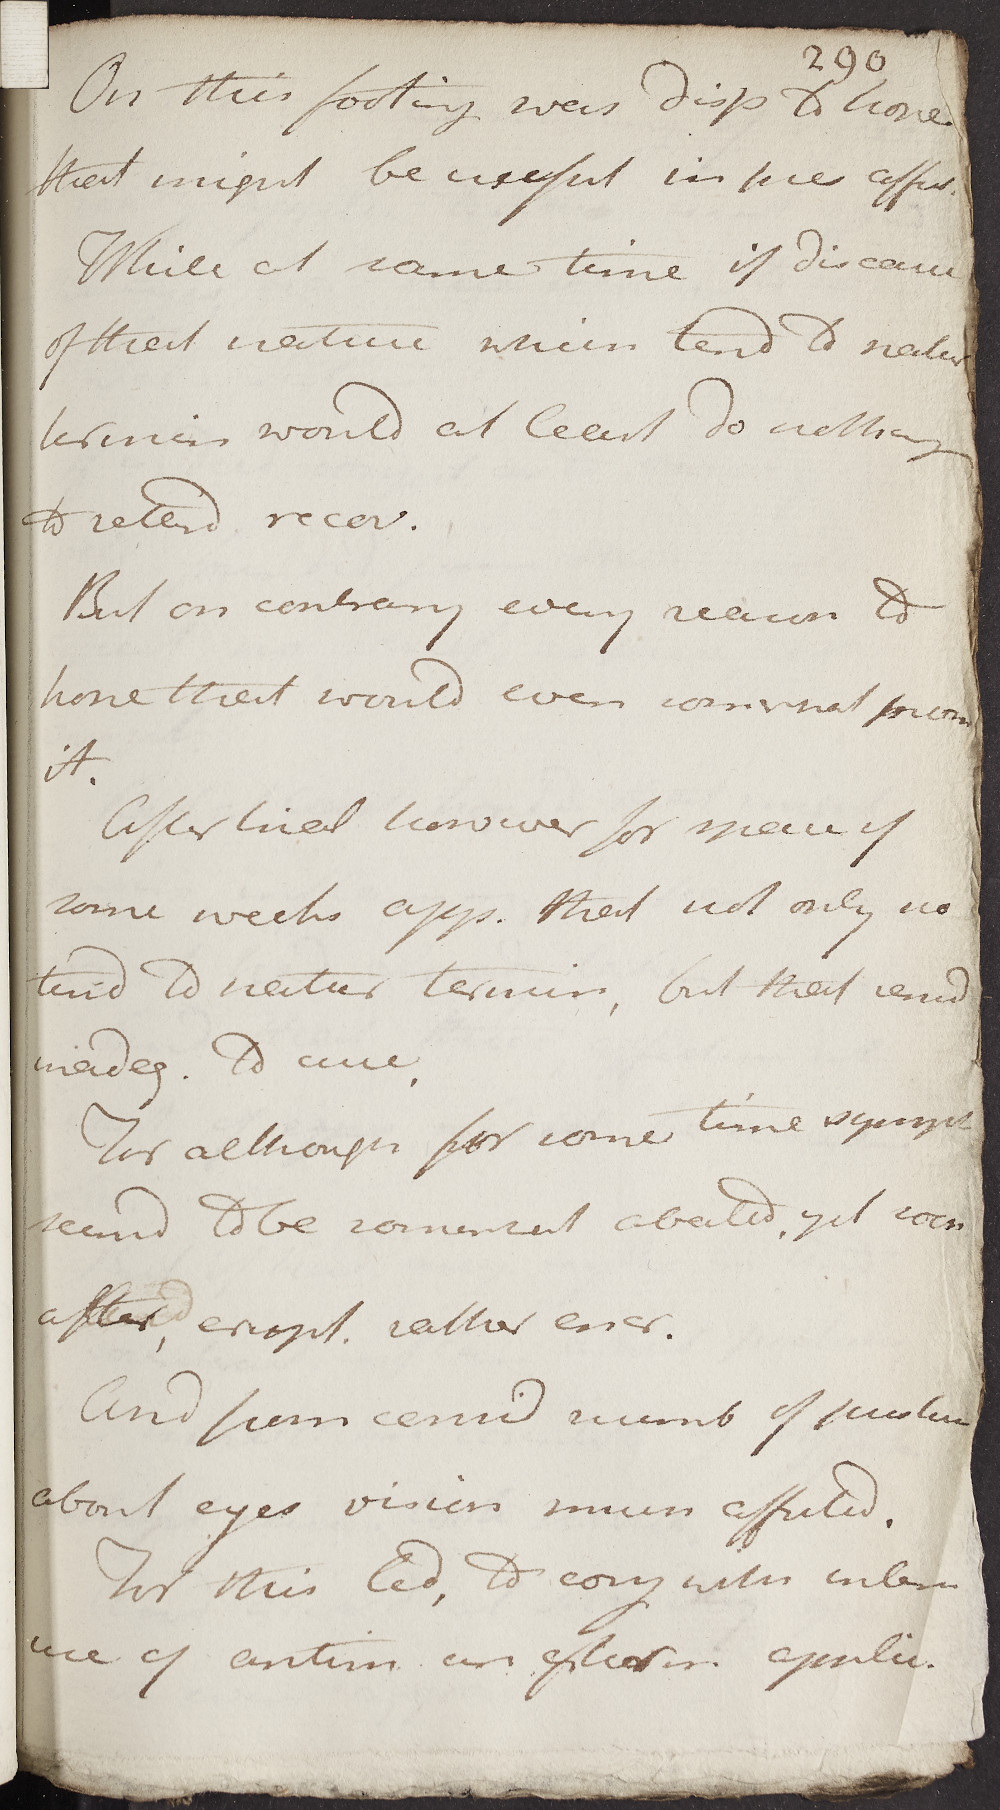 290
On this footing was disp to hope
that might be useful in pres affect.
While at same time if disease
of that nature which tend to natur
termin would at least do nothing
to retard recov.
But on contrary every reason to
hope that would even somewhat prom
it.
After trial however for space of
some weeks app. that not only no
tend to natur termin, but that remd
inadeq. to cure.
For although for some time sympt
seemd to be somewhat abated, yet soon
after, erupt. rather encr.
And from consid numb of pustu
about eyes vision much affected.
For this led, to conj with intern
use of antim an external applic.